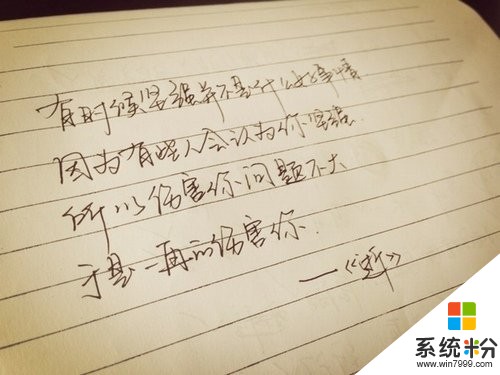 有时候坚强并不是什么好事情
因为有些人会认为你坚强.
所以伤害你问题不大
于是一再的伤害你.
——《》
系统粉
www.win7999.com